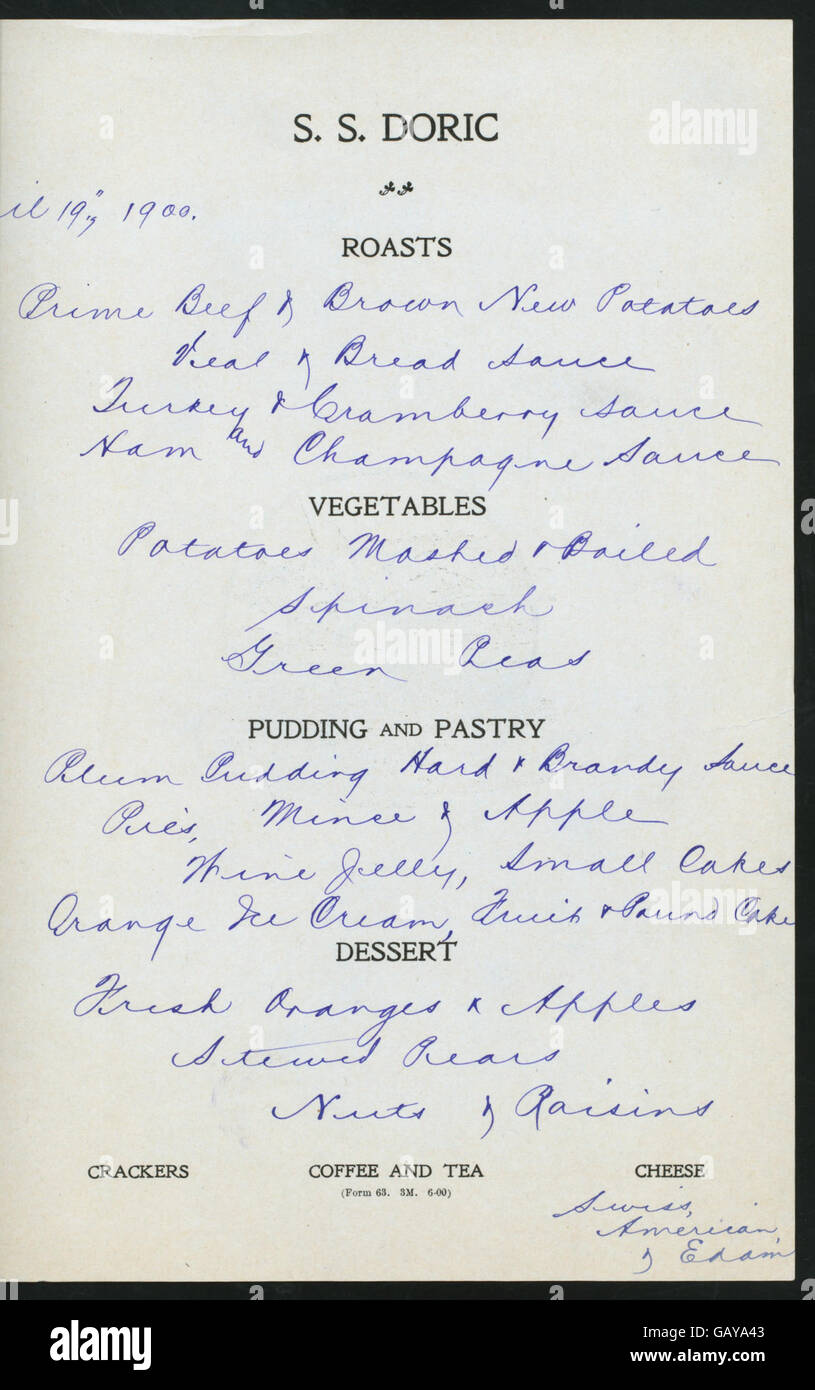 S. S. DORIC
il 19", 1900.
ROASTS
Prime Beef & Brown New Potatoes
Veal & Bread Sauce
Turkey & Cramberry Sauce
Ham and Champagne Sauce
VEGETABLES
Potatoes Mashed & Boiled
Spinach
Green Peas
PUDDING AND PASTRY
Plum Pudding Hard & Brandy Sauce
Pies, Mince & Apple
Wine Jelly, Small Cakes
Orange Ice Cream, Fruit & Pound Cake
DESSERT
Fresh Oranges & Apples
Stewed Pears
Nuts & Raisins
CRACKERS COFFEE AND TEA CHEESE
(Form 63. 3M. 6-00)
Swiss,
American,
& Edam
a alamy stock photo
GAYA43
www.alamy.com